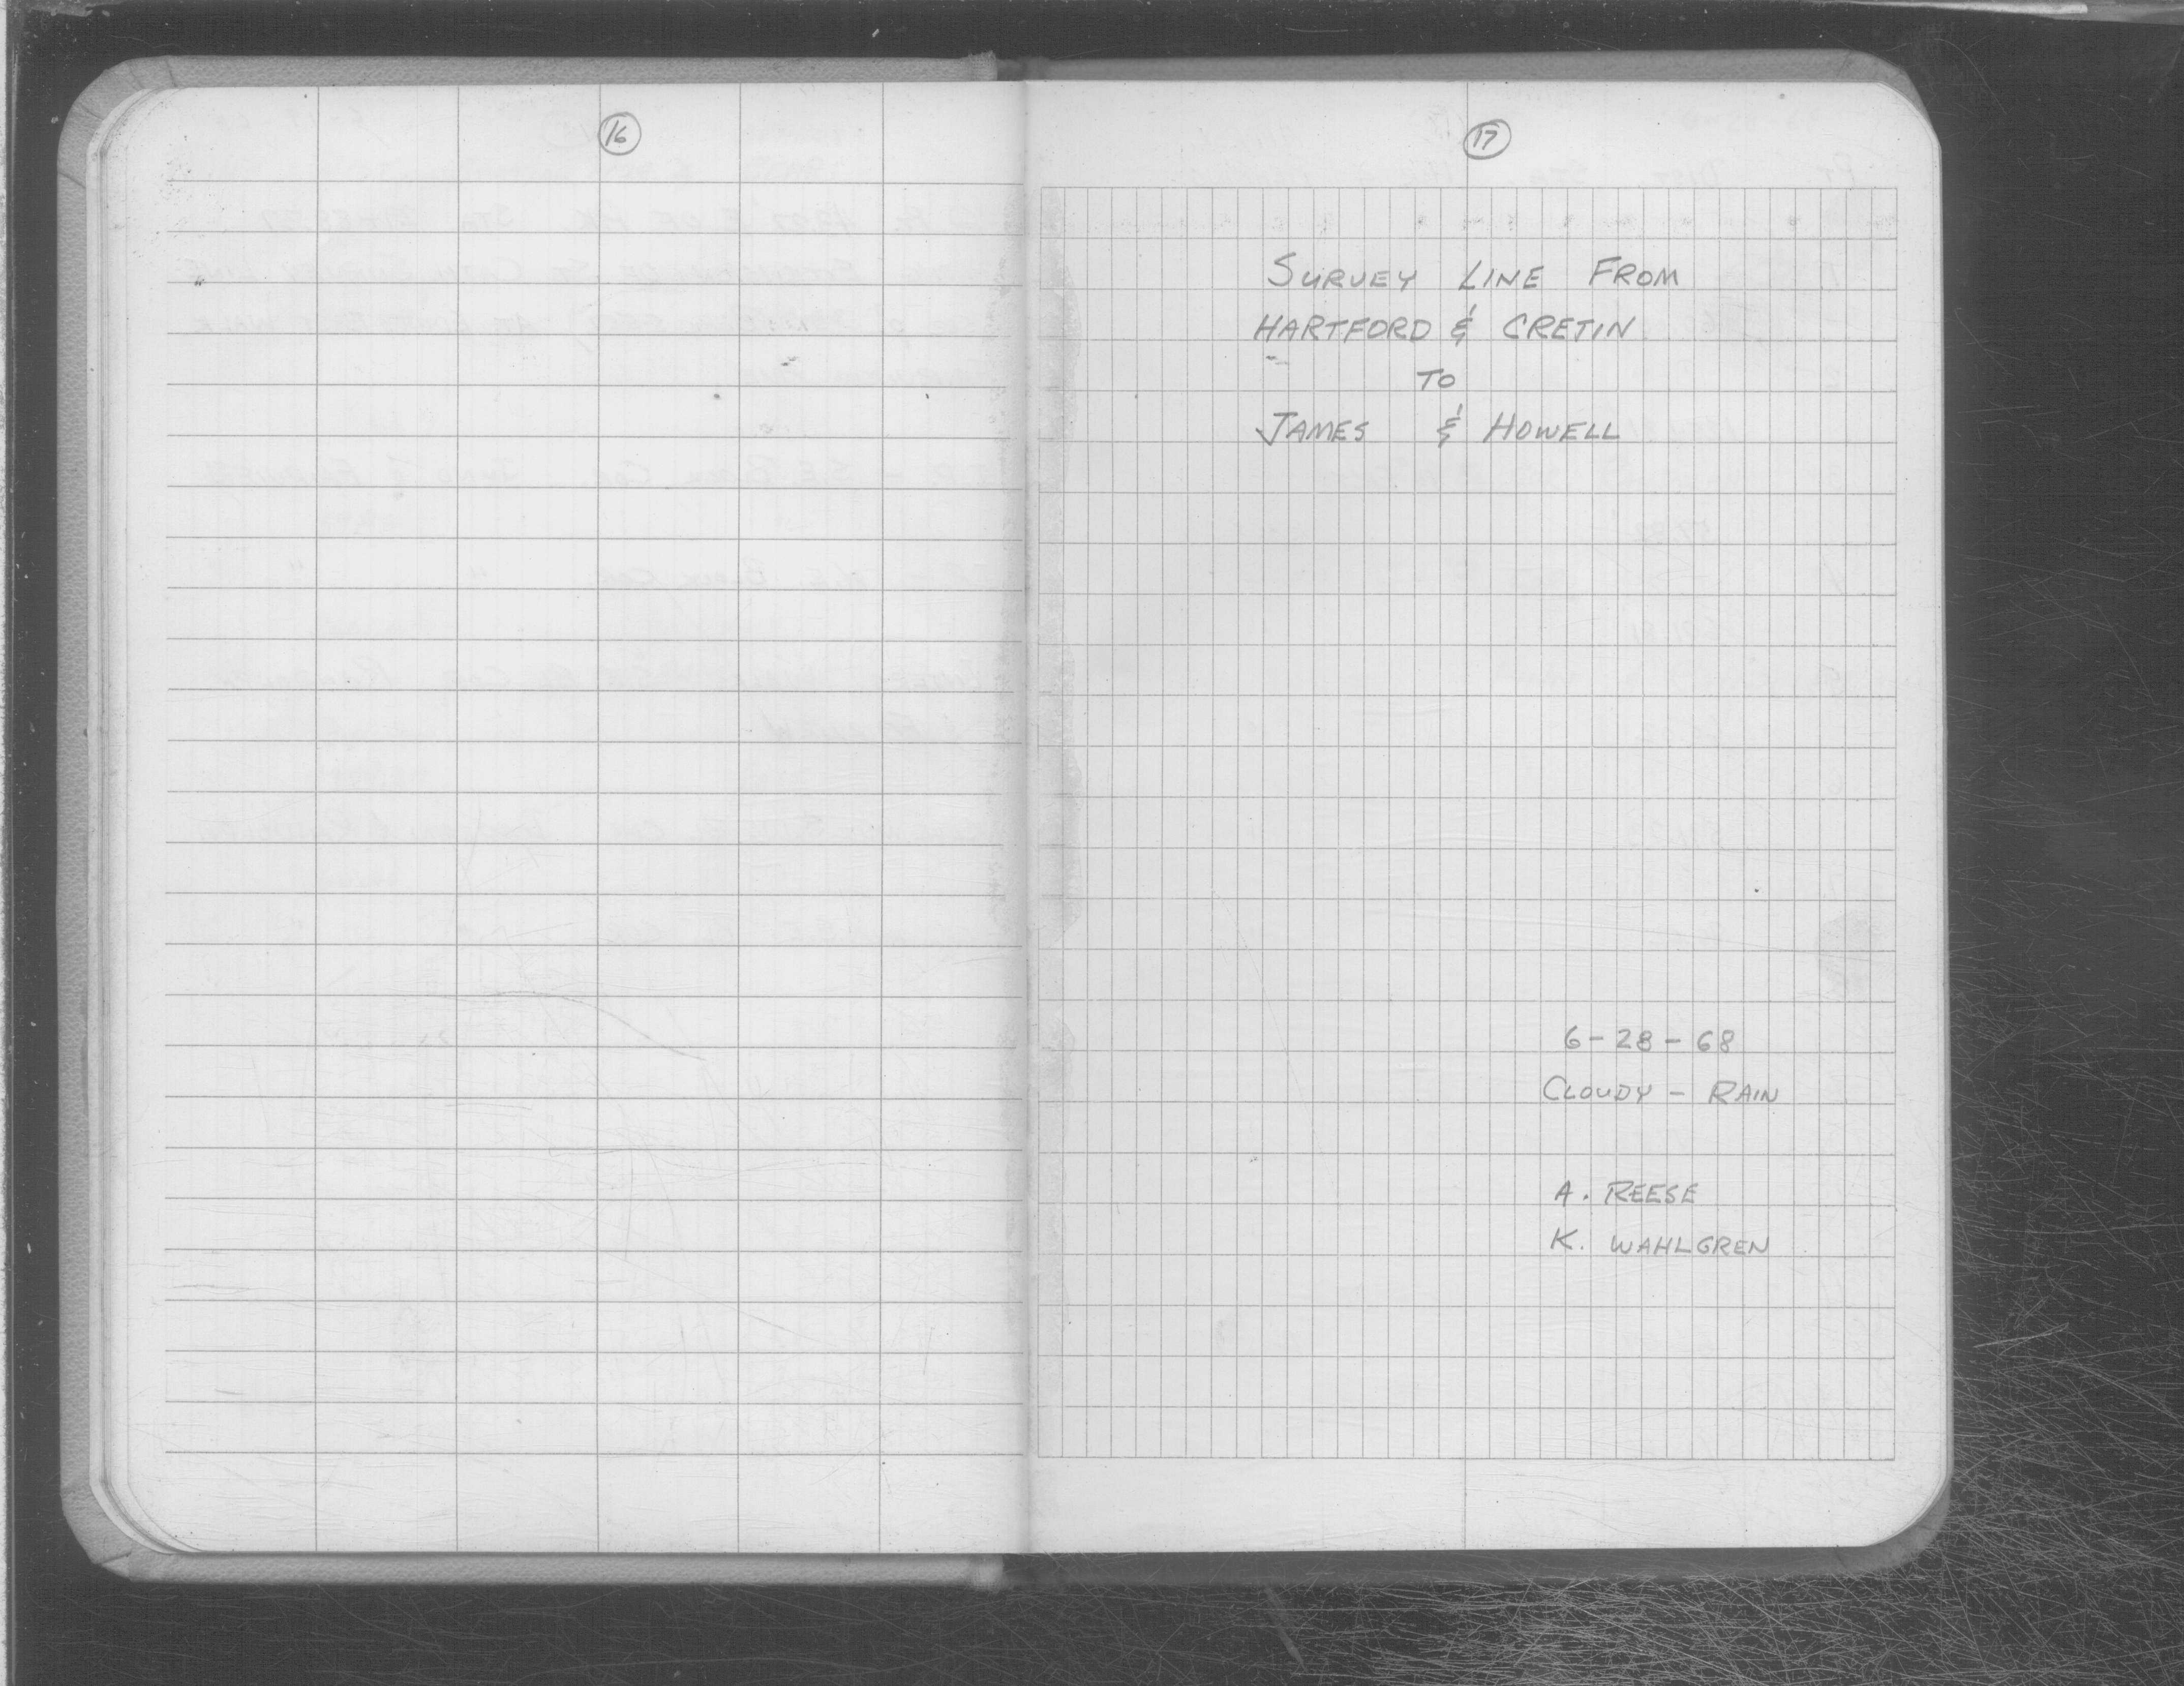 16
17
SURVEY LINE FROM
HARTFORD & CRETIN
TO
JAMES & HOWELL
6-28-68
CLOUDY - RAIN
A. REESE
K. WAHLGREN